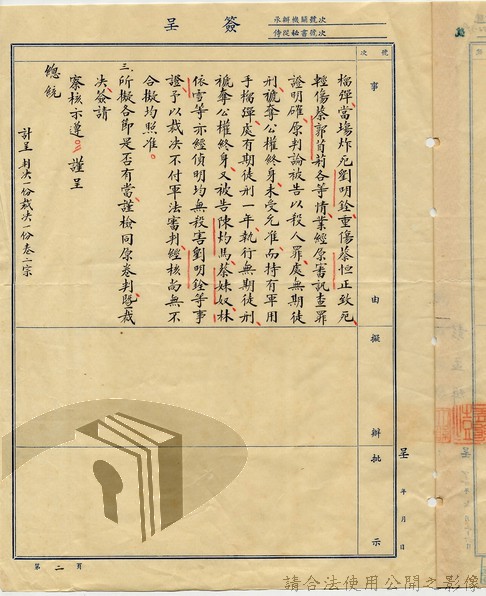 簽呈
承辦機關號次
侍從秘書號次
號次
事由擬辦批示
榴彈、當場炸死劉明銓、重傷蔡恒正致死、
輕傷蔡郭首莉各等情、業經原審訊查罪
證明確、原判論被告以殺人罪、處無期徒
刑、褫奪公權終身、未受允准、而持有軍用
手榴彈、處有期徒刑一年、執行無期徒刑、
褫奪公權終身、又被告陳灼馬、蔡妹奴、林
依雪等亦經偵明均無殺害劉明銓等事
證、予以裁決不付軍法審判、經核尚無不
合、擬均照准。
三、所擬各節是否有當、謹檢同原卷判暨裁
決、簽請
察核示遵。謹呈
總統
計呈判決一份裁決一份卷二宗
呈 年 月 日
第二頁
請合法使用公開之影像